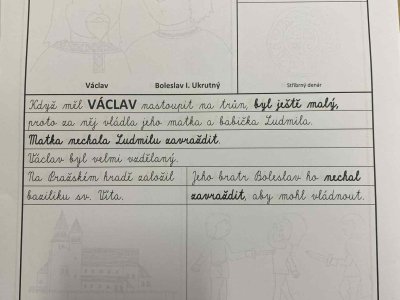 Václav
Boleslav I. Ukrutný
Stříbrný denár
Když měl VÁCLAV nastoupit na trůn, byl ještě malý,
proto za něj vládla jeho matka a babička Ludmila.
Matka nechala Ludmilu zavraždit.
Václav byl velmi vzdělaný.
Na Pražském hradě založil
baziliku sv. Víta.
Jeho bratr Boleslav ho nechal
zavraždit, aby mohl vládnout.